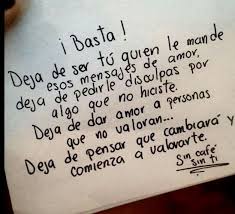 ¡Basta!
Deja de ser tú quien le mande
esos mensajes de amor,
deja de pedirle disculpas por
algo que no hiciste.
Deja de dar amor a personas
que no valoran...
Deja de pensar que cambiará y
comienza a valorarte.
Sin café
sin ti